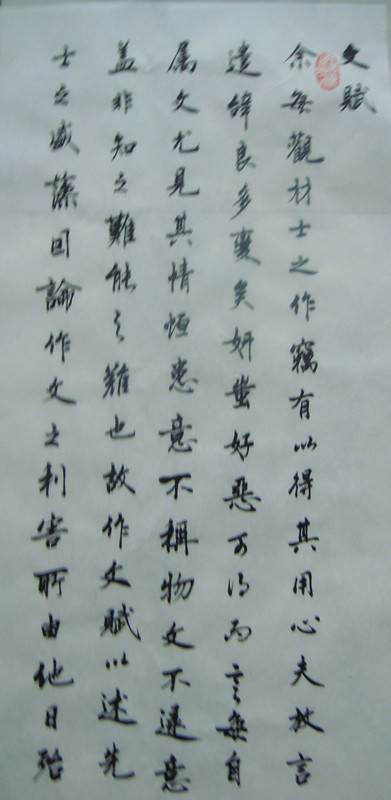 文賦
余每觀材士之作竊有以得其用心夫放言
遣辭良多變矣妍蚩好惡可得而言每自
属文尤見其情恒患意不稱物文不逮意
盖非知之難能之難也故作文賦以述先
士之盛藻因論作文之利害所由他日殆